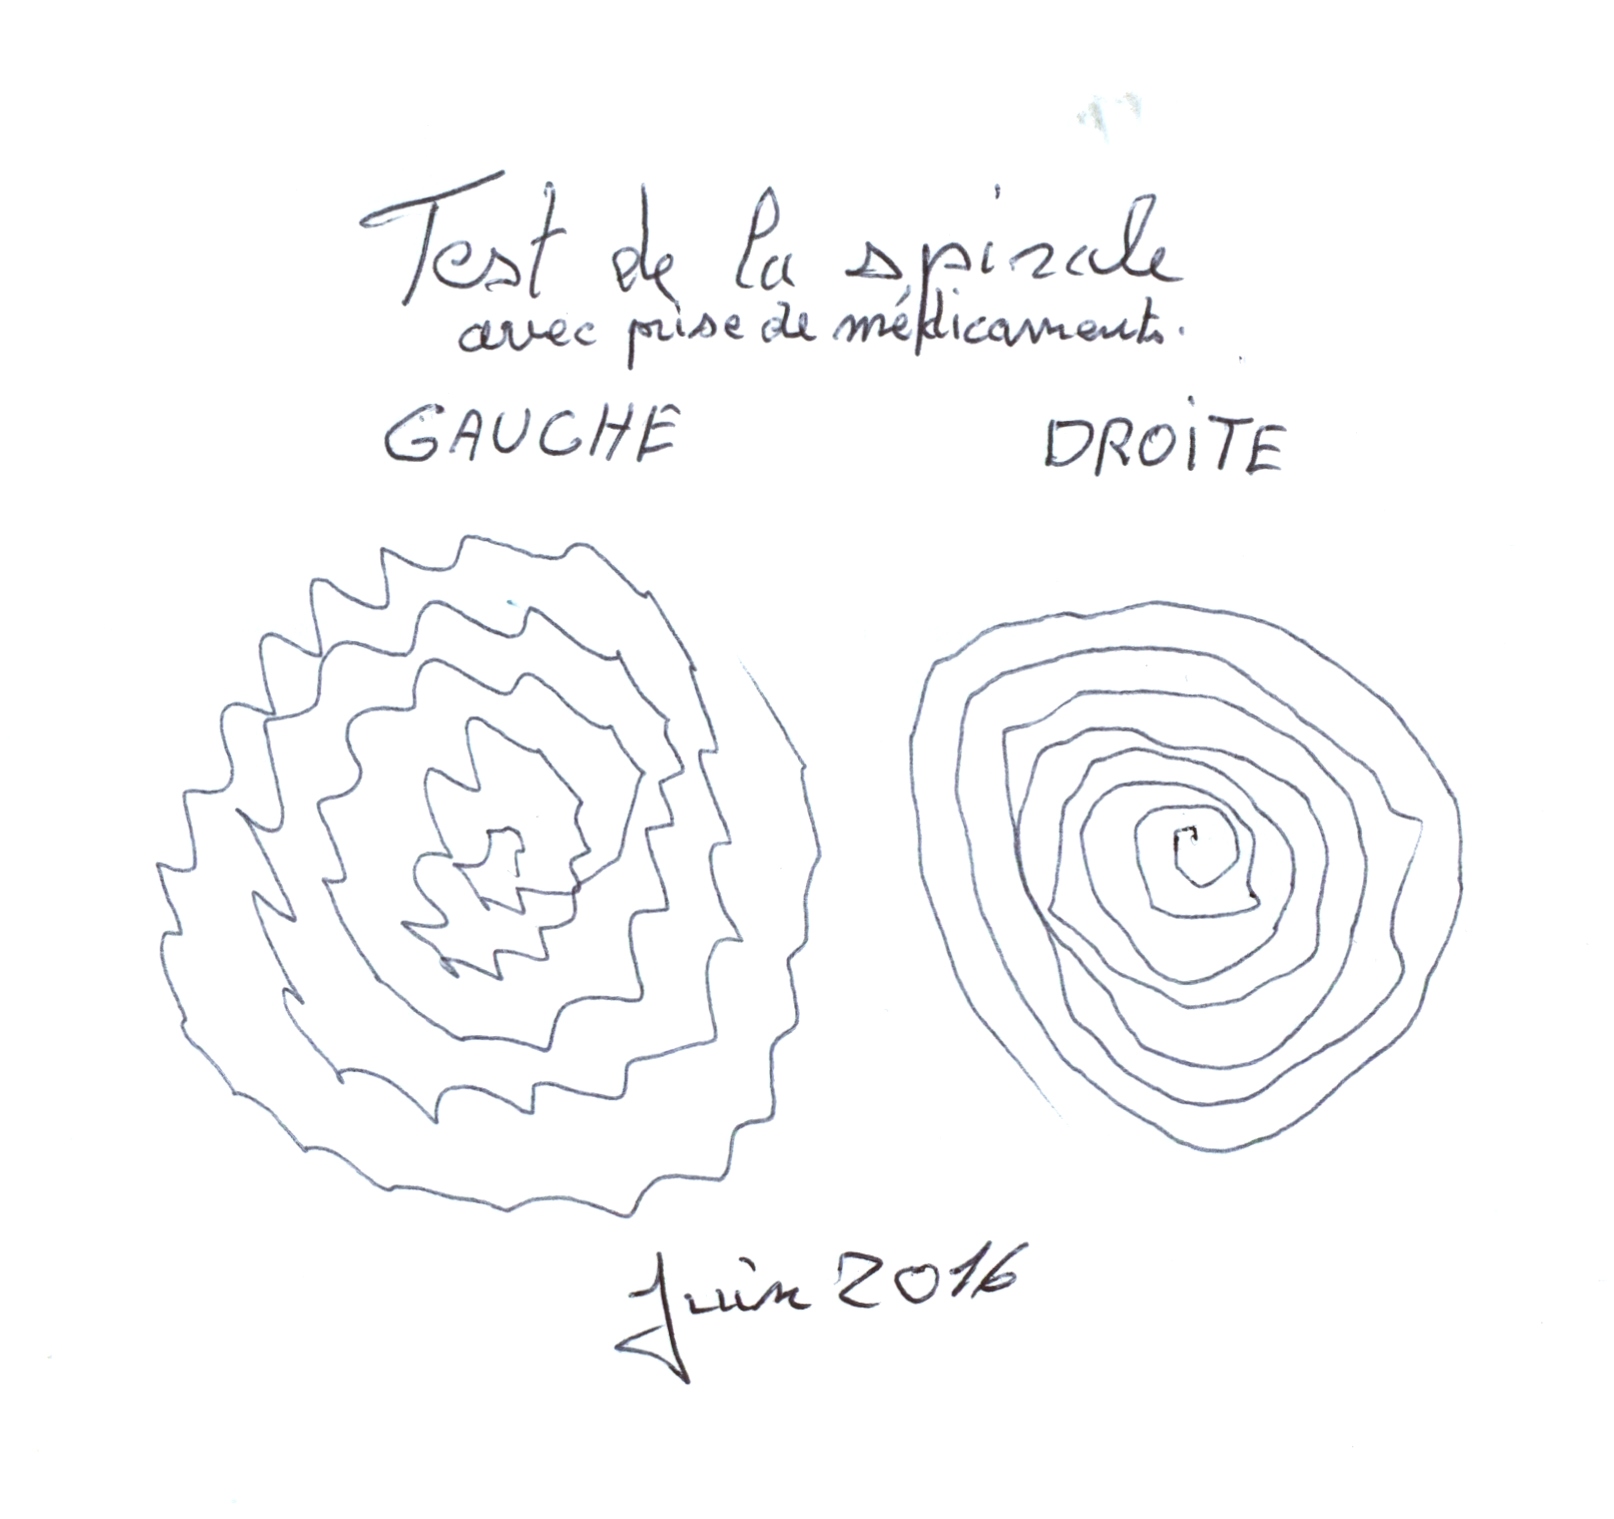 Test de la spirale
avec prise de médicaments.
GAUCHE DROITE
Juin 2016